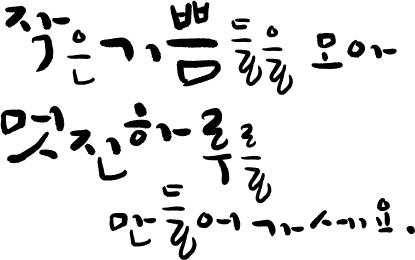 작은 기쁨들을 모아
멋진 하루를
만들어 가세요.